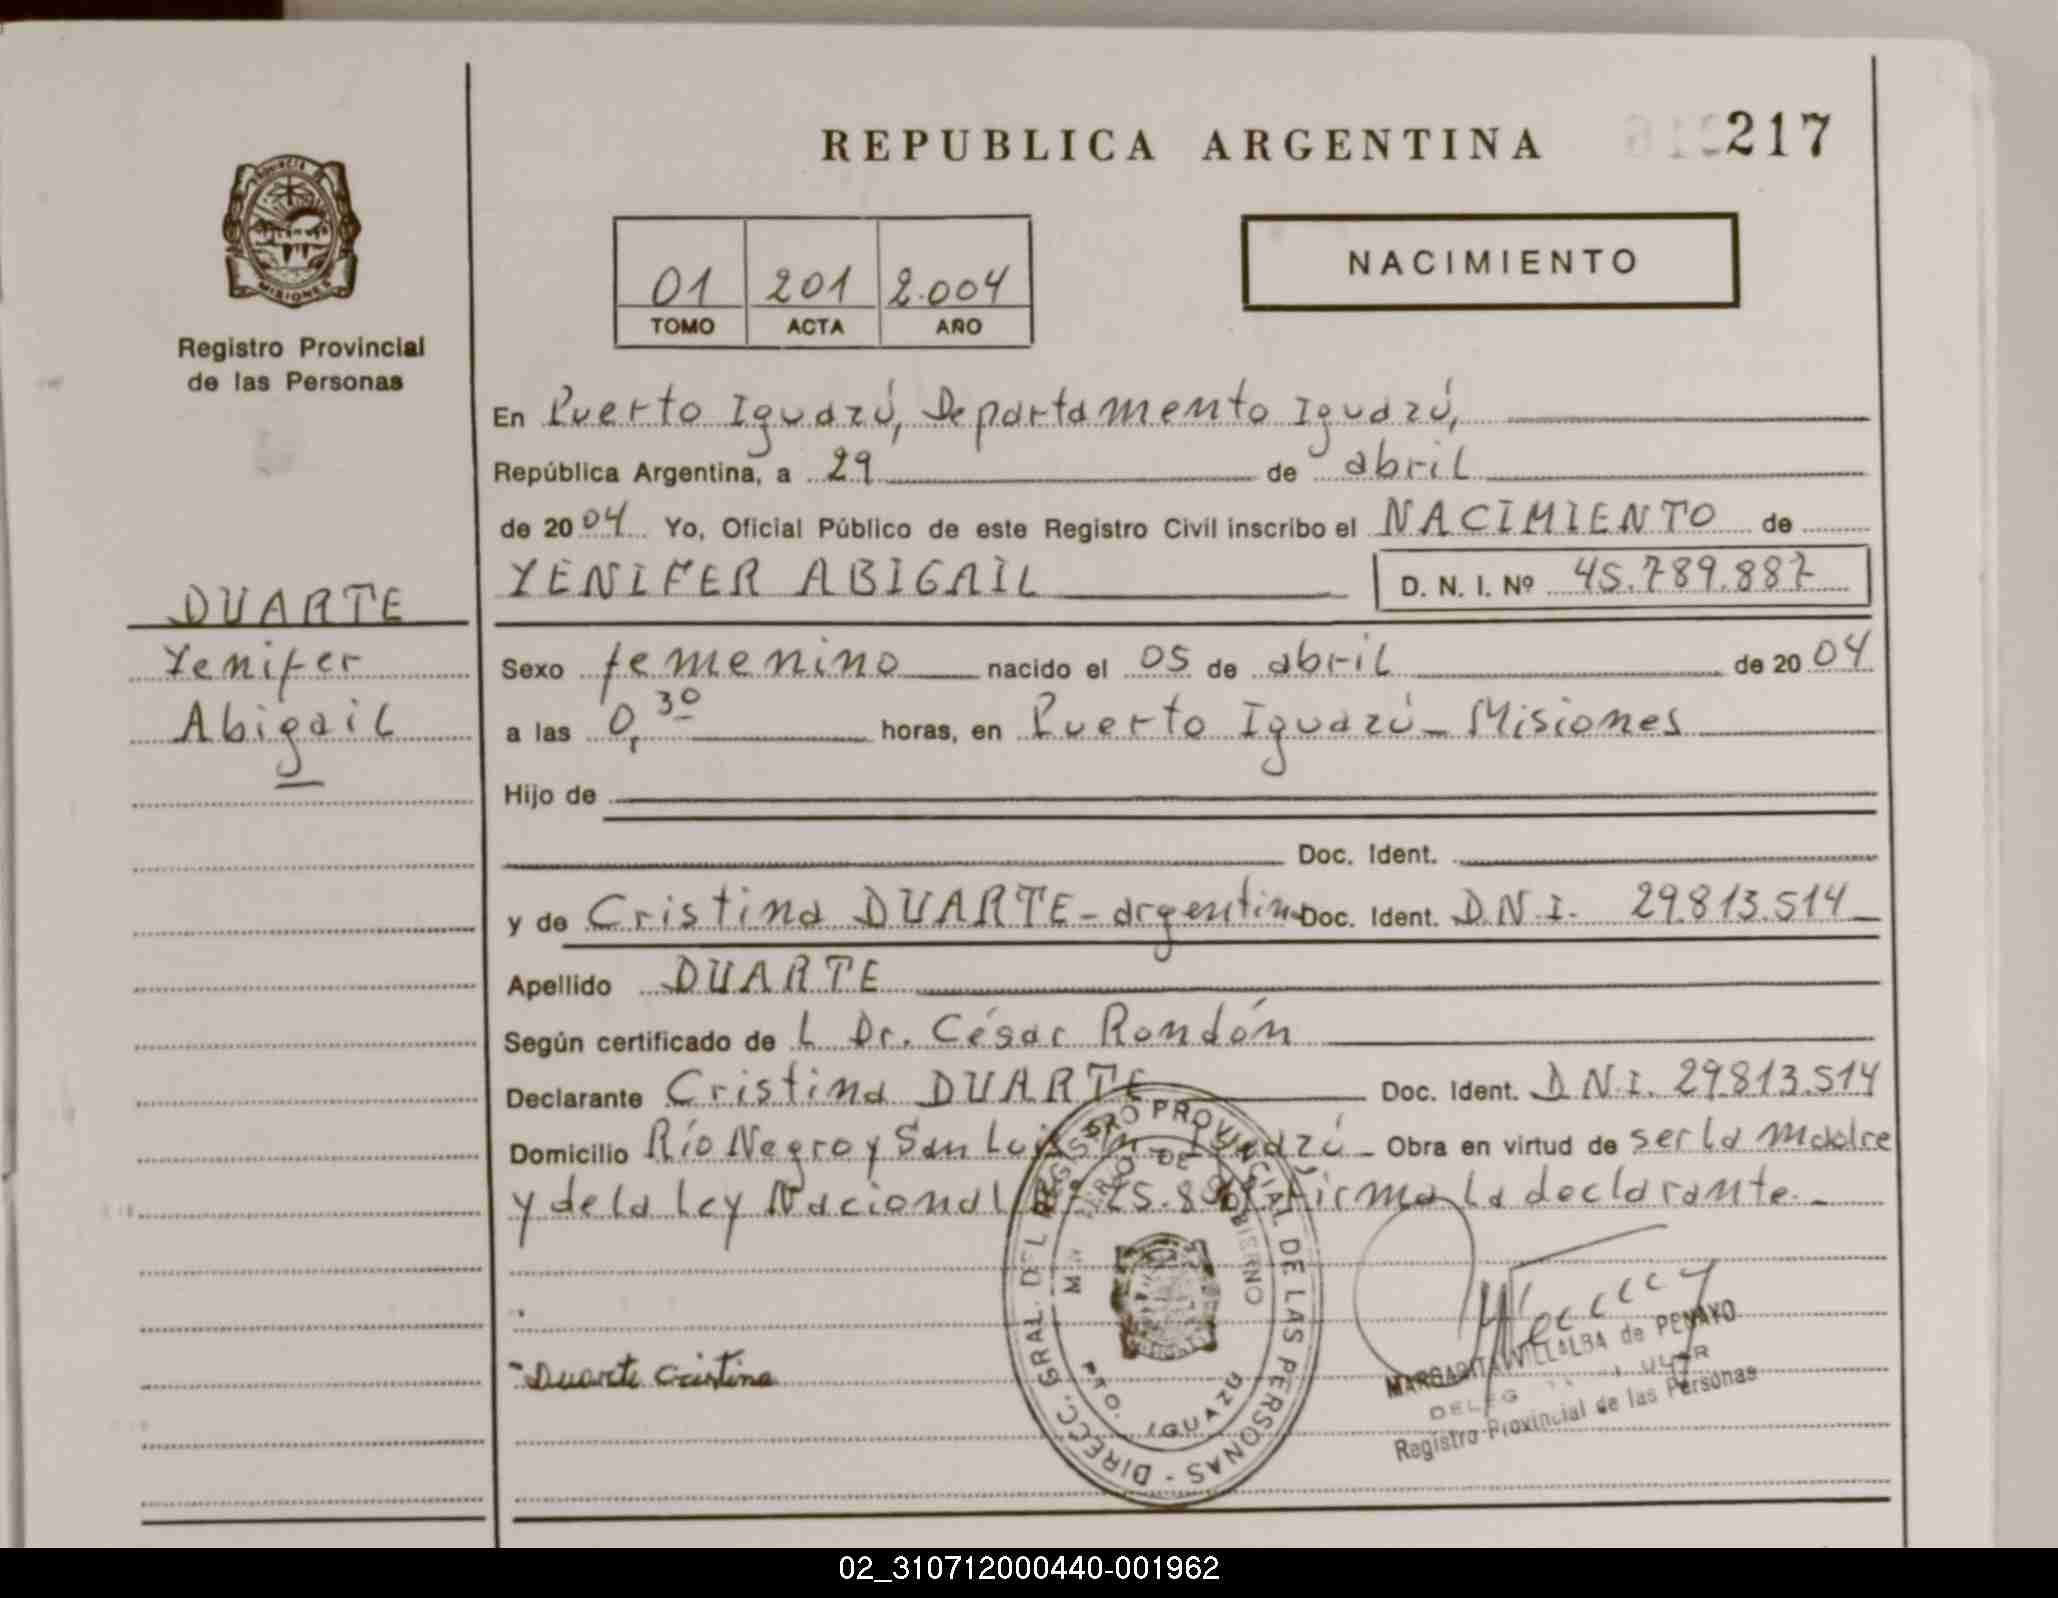 REPUBLICA ARGENTINA 217
PROVINCIA DE
MISIONES
Registro Provincial
de las Personas
01 201 2.004
TOMO ACTA AÑO
NACIMIENTO
En Puerto Iguazú, Departamento Iguazú,
República Argentina, a 29 de abril
de 2004 Yo, Oficial Público de este Registro Civil inscribo el NACIMIENTO de
YENIFER ABIGAIL D. N. I. Nº 45.789.887
DUARTE
Yenifer
Abigail
Sexo femenino nacido el 05 de abril de 2004
a las 0,30 horas, en Puerto Iguazú - Misiones
Hijo de
Doc. Ident.
y de Cristina DUARTE - argentina Doc. Ident. D.N.I. 29.813.514
Apellido DUARTE
Según certificado de L Dr. César Rondón
Declarante Cristina DUARTE Doc. Ident. D.N.I. 29.813.514
Domicilio Río Negro y San Luis Iguazú - Obra en virtud de ser la madre
y de la Ley Nacional firma la declarante. -
Duarte Cristina
DIRECC. GRAL. DEL REGISTRO PROVINCIAL DE LAS PERSONAS -
MINISTERIO DE GOBIERNO
PTO. IGUAZU
MARGARITA VILLALBA de PENAYO
Registro Provincial de las Personas
02_310712000440-001962